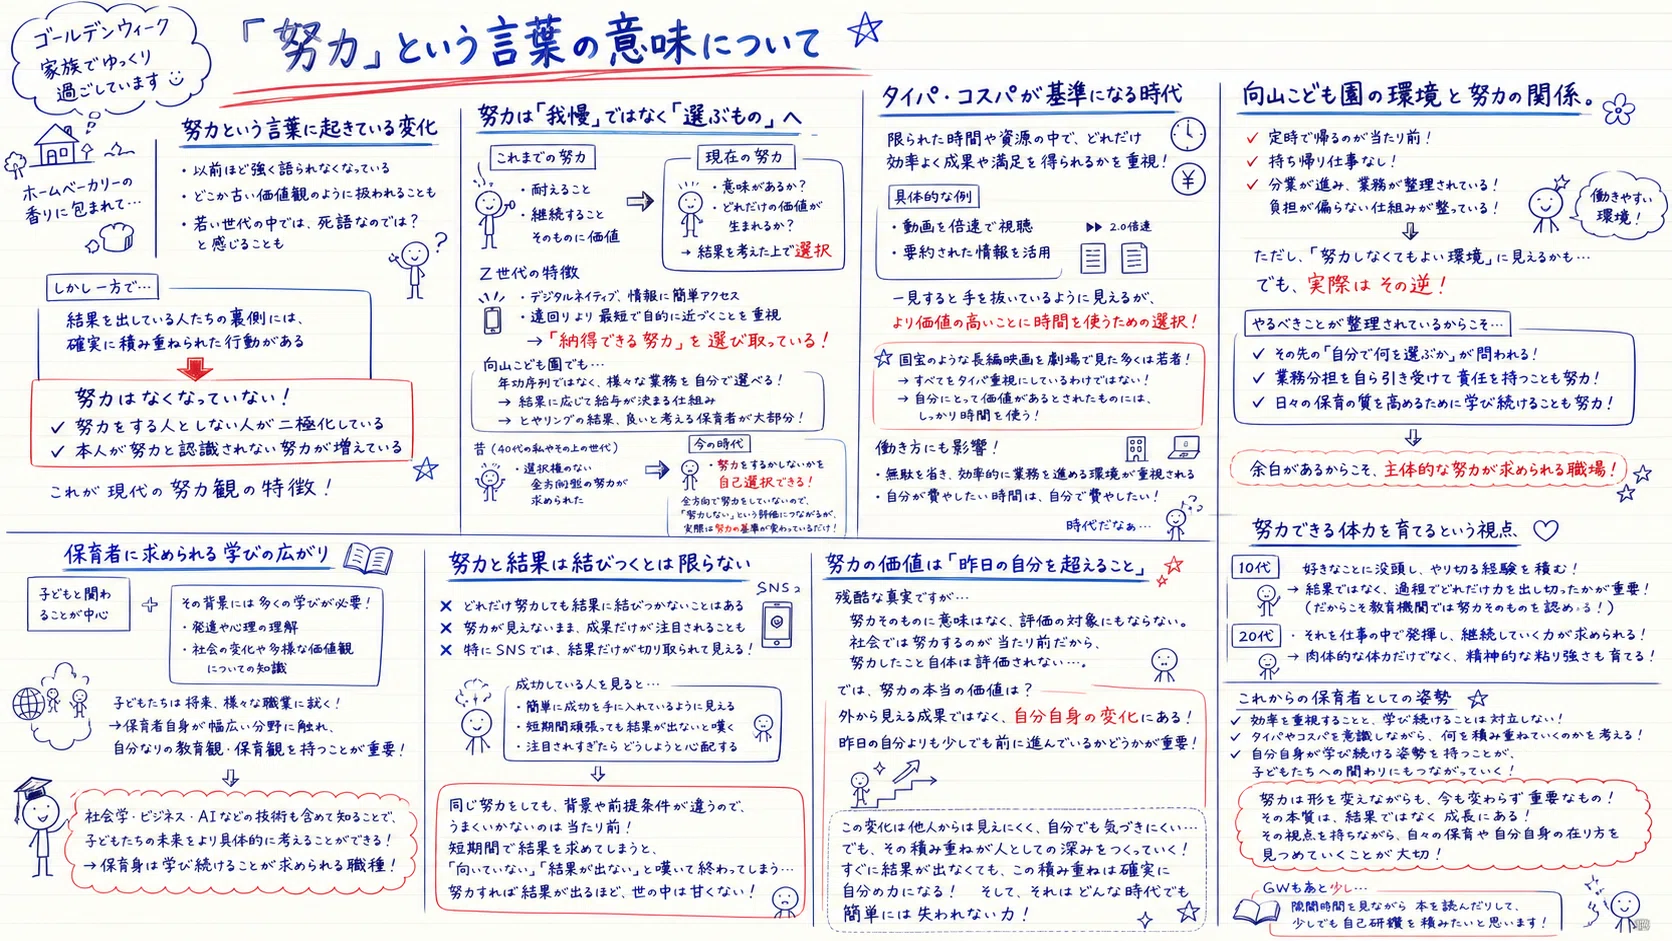 ゴールデンウィーク
家族でゆっくり
過ごしています
ホームベーカリーの
香りに包まれて…
「努力」という言葉の意味について
努力という言葉に起きている変化
・以前ほど強く語られなくなっている
・どこか古い価値観のように扱われることも
・若い世代の中では、死語なのでは?
と感じることも
?
しかし一方で…
結果を出している人たちの裏側には、
確実に積み重ねられた行動がある
努力はなくなっていない!
✓ 努力をする人としない人が二極化している
✓ 本人が努力と認識されない努力が増えている
これが現代の努力観の特徴!
努力は「我慢」ではなく「選ぶもの」へ
これまでの努力
・耐えること
・継続すること
そのものに価値
現在の努力
・意味があるか?
・どれだけの価値が
生まれるか?
→ 結果を考えた上で選択
Z世代の特徴
・デジタルネイティブ、情報に簡単アクセス
・遠回りより最短で目的に近づくことを重視
→「納得できる努力」を選び取っている!
向山こども園でも…
年功序列ではなく、様々な業務を自分で選べる!
→ 結果に応じて給与が決まる仕組み
→ とヤリングの結果、良いと考える保育者が大部分!
昔(40代の私やその上の世代)
・選択権のない
全方向型の努力が
求められた
今の時代
・努力をするかしないかを
自己選択できる!
全方向で努力をしていないので、
「努力しない」という評価につながるが、
実際は努力の基準が変わっているだけ!
タイパ・コスパが基準になる時代
限られた時間や資源の中で、どれだけ
効率よく成果や満足を得られるかを重視!
¥
具体的な例
・動画を倍速で視聴
2.0倍速
・要約された情報を活用
一見すると手を抜いているように見えるが、
より価値の高いことに時間を使うための選択!
国宝のような長編映画を劇場で見た多くは若者!
→ すべてをタイパ重視にしているわけではない!
→ 自分にとって価値があるとされたものには、
しっかり時間を使う!
働き方にも影響!
・無駄を省き、効率的に業務を進める環境が重視される
・自分が費やしたい時間は、自分で費やしたい!
時代だなぁ…
向山こども園の環境と努力の関係。
✓ 定時で帰るのが当たり前!
✓ 持ち帰り仕事なし!
✓ 分業が進み、業務が整理されている!
負担が偏らない仕組みが整っている!
働きやすい
環境!
ただし、「努力しなくてもよい環境」に見えるかも…
でも、実際はその逆!
やるべきことが整理されているからこそ…
✓ その先の「自分で何を選ぶか」が問われる!
✓ 業務分担を自ら引き受けて責任を持つことも努力!
✓ 日々の保育の質を高めるために学び続けることも努力!
余白があるからこそ、主体的な努力が求められる職場!
保育者に求められる学びの広がり
子どもと関わ
ることが中心
+
その背景には多くの学びが必要!
・発達や心理の理解
・社会の変化や多様な価値観
についての知識
子どもたちは将来、様々な職業に就く!
→保育者自身が幅広い分野に触れ、
自分なりの教育観・保育観を持つことが重要!
社会学・ビジネス・AIなどの技術も含めて知ることで、
子どもたちの未来をより具体的に考えることができる!
→ 保育身は学び続けることが求められる職種!
努力と結果は結びつくとは限らない
✕ どれだけ努力しても結果に結びつかないことはある
✕ 努力が見えないまま、成果だけが注目されることも
✕ 特にSNSでは、結果だけが切り取られて見える!
成功している人を見ると…
・簡単に成功を手に入れているように見える
・短期間頑張っても結果が出ないと嘆く
・注目されすぎたらどうしようと心配する
同じ努力をしても、背景や前提条件が違うので、
うまくいかないのは当たり前!
短期間で結果を求めてしまうと、
「向いていない」「結果が出ない」と嘆いて終わってしまう…
努力すれば結果が出るほど、世の中は甘くない!
努力の価値は「昨日の自分を超えること」
残酷な真実ですが…
努力そのものに意味はなく、評価の対象にもならない。
社会では努力するのが当たり前だから、
努力したこと自体は評価されない…。
では、努力の本当の価値は?
外から見える成果ではなく、自分自身の変化にある!
昨日の自分よりも少しでも前に進んでいるかどうかが重要!
この変化は他人からは見えにくく、自分でも気づきにくい…
でも、その積み重ねが人としての深みをつくっていく!
すぐに結果が出なくても、この積み重ねは確実に
自分の力になる! そして、それはどんな時代でも
簡単には失われない力!
努力できる体力を育てるという視点
10代
好きなことに没頭し、やり切る経験を積む!
→ 結果ではなく、過程でどれだけ力を出し切ったかが重要!
(だからこそ教育機関では努力そのものを認める!)
20代
・それを仕事の中で発揮し、継続していく力が求められる!
→ 肉体的な体力だけでなく、精神的な粘り強さも育てる!
これからの保育者としての姿勢
✓ 効率を重視することと、学び続けることは対立しない!
✓ タイパやコスパを意識しながら、何を積み重ねていくのかを考える!
✓ 自分自身が学び続ける姿勢を持つことが、
子どもたちへの関わりにもつながっていく!
努力は形を変えながらも、今も変わらず重要なもの!
その本質は、結果ではなく成長にある!
その視点を持ちながら、日々の保育や自分自身の在り方を
見つめていくことが大切!
GWもあと少し…
隙間時間を見ながら本を読んだりして、
少しでも自己研鑽を積みたいと思います!